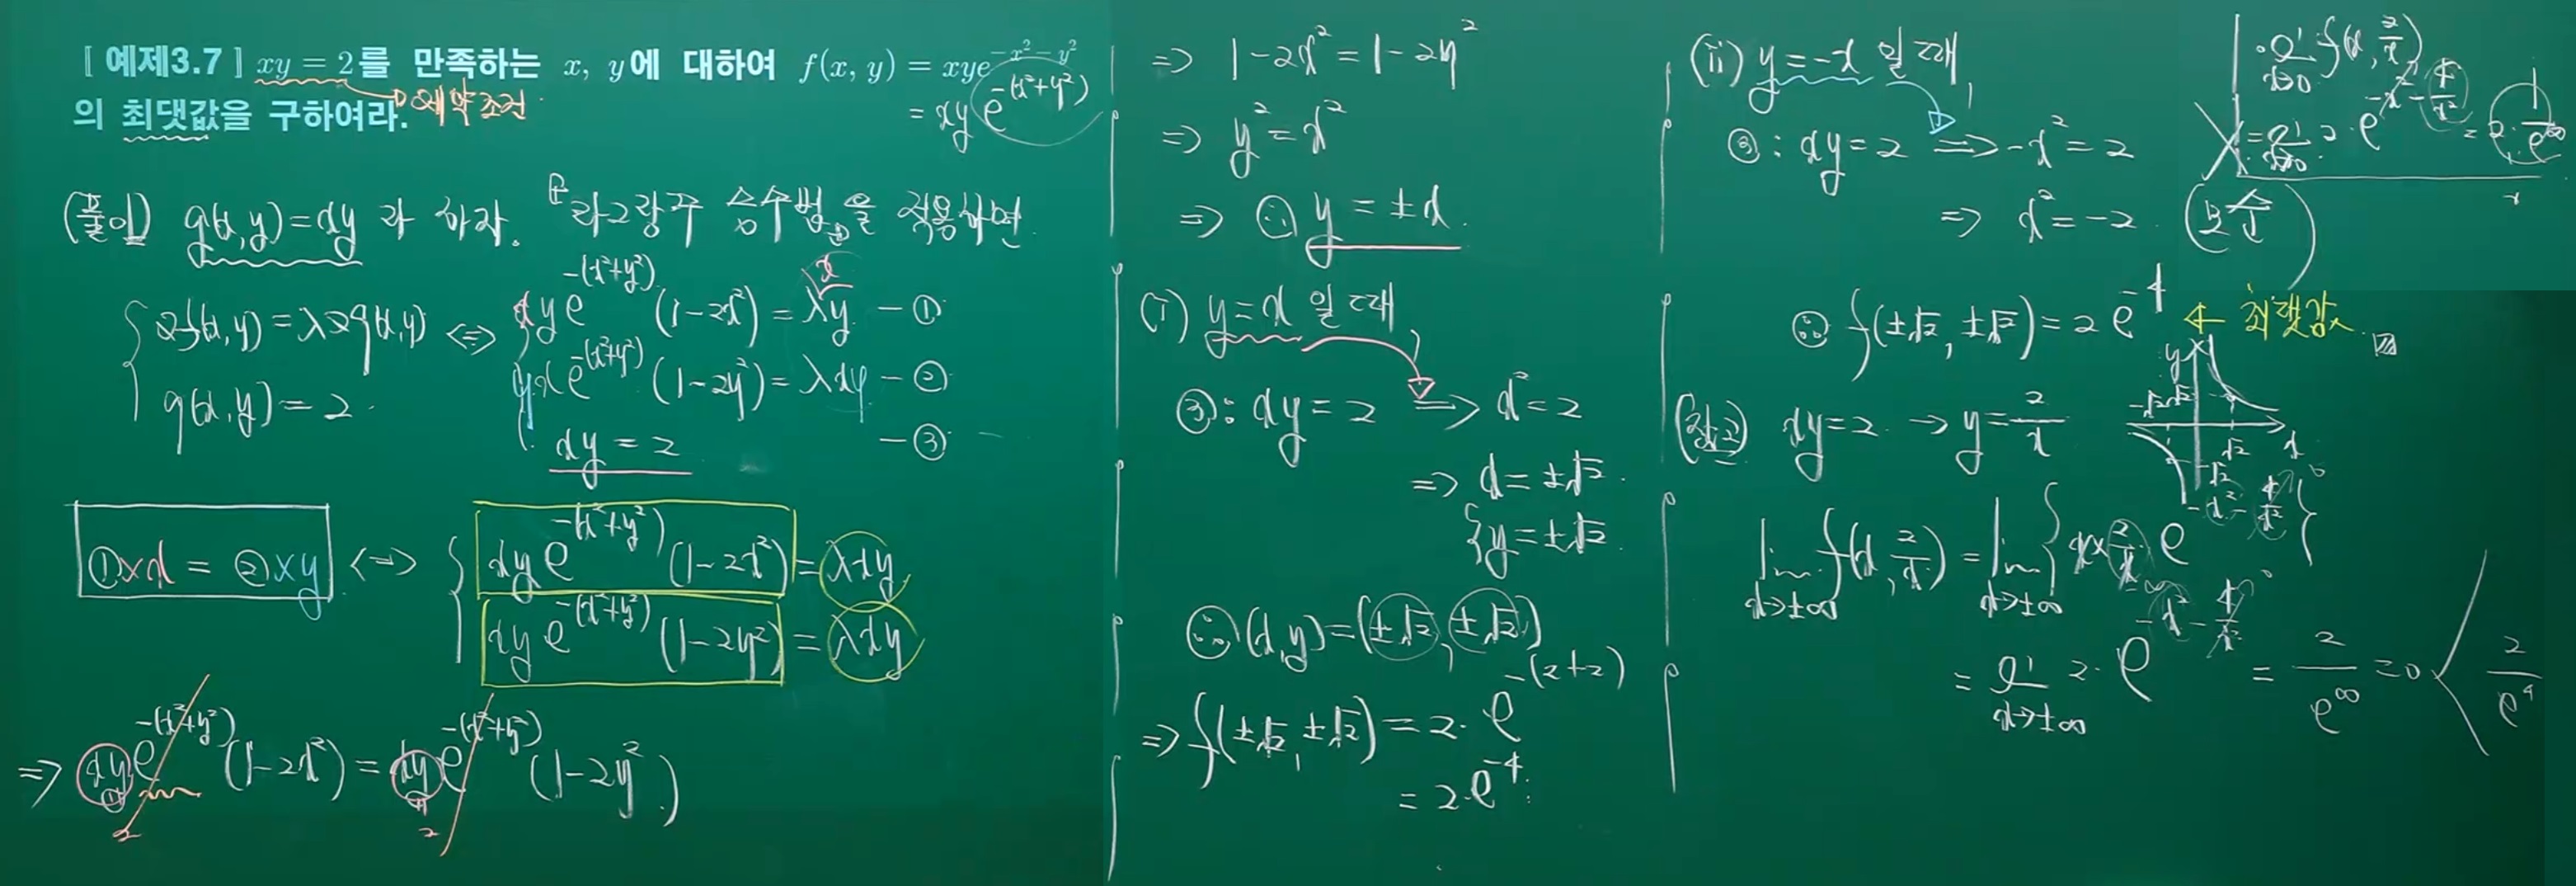 [예제3.7] xy = 2를 만족하는 x, y에 대하여 f(x, y) = xye^{-x²-y²}
= xy e^{-(x²+y²)}
의 최댓값을 구하여라. → 제약조건
(풀이) g(x,y)=xy 라 하자. 『라그랑주 승수법』을 적용하면
{ ∇f(x,y)=λ∇g(x,y) ⇔ { xye^{-(x²+y²)} (1-2x²) = λxy - ①
yxe^{-(x²+y²)} (1-2y²) = λxy - ②
g(x,y)=2.
xy = 2 - ③
①×x = ②×y ⇔ { xye^{-(x²+y²)} (1-2x²) = λxy
xye^{-(x²+y²)} (1-2y²) = λxy
⇒ xye^{-(x²+y²)} (1-2x²) = xye^{-(x²+y²)} (1-2y²)
2 2
⇒ 1-2x² = 1-2y²
⇒ y² = x²
⇒ ∴ y = ±x.
(i) y=x 일 때,
③: xy = 2 ⇒ x² = 2
⇒ x = ±√2.
{ y = ±√2.
∴ (x,y) = (±√2, ±√2)
⇒ f(±√2, ±√2) = 2·e^{-(2+2)}
= 2·e^{-4}.
(ii) y=-x 일 때,
③: xy = 2 ⇒ -x² = 2
⇒ x² = -2. (모순)
∴ f(±√2, ±√2) = 2e^{-4} ← 최댓값.
(참고) xy=2 → y = 2/x
y x √2 √2 -√2 -√2
lim_{x→±∞} f(x, 2/x) = lim_{x→±∞} { x × 2/x · e^{-x²-4/x²} }
= lim_{x→±∞} 2·e^{-x²-4/x²} = 2/e^∞ = 0 < 2/e⁴
· lim_{x→0} f(x, 2/x)
= lim_{x→0} 2·e^{-x²-4/x²} = 2·1/e^∞